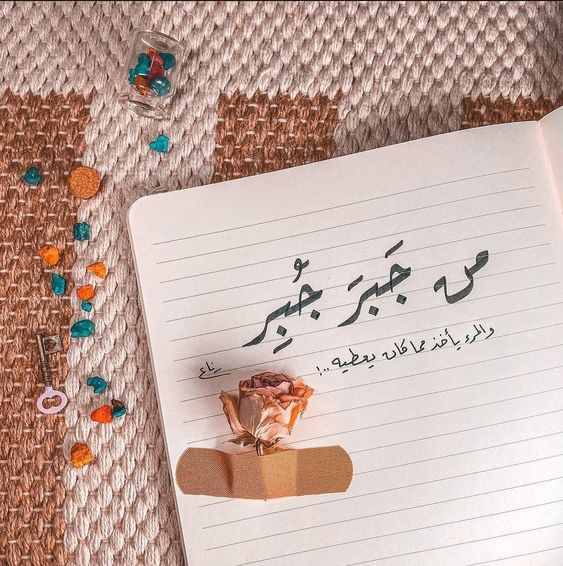 من جَبرَ جُبِر
والمرء يأخذ مما كان يعطيه ..!